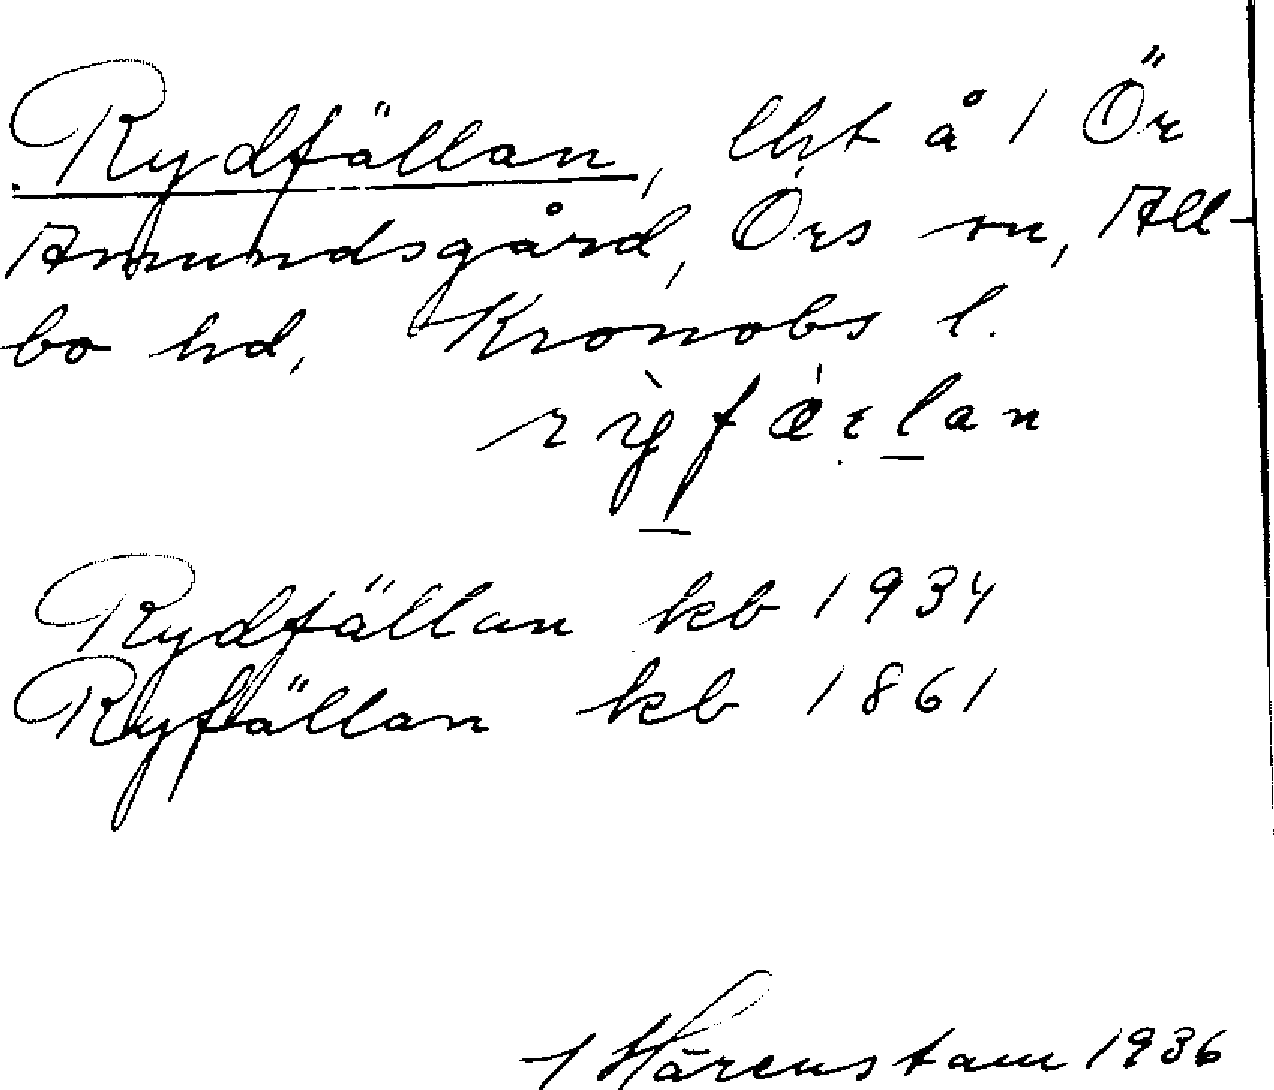 Rydfällan, lht å 1 Ör
Amundsgård, Örs sn, All-
bo hd, Kronobs l.
rỳfæ̀lan
Rydfällan kb 1934
Ryfällan kb 1861
Härenstam 1936